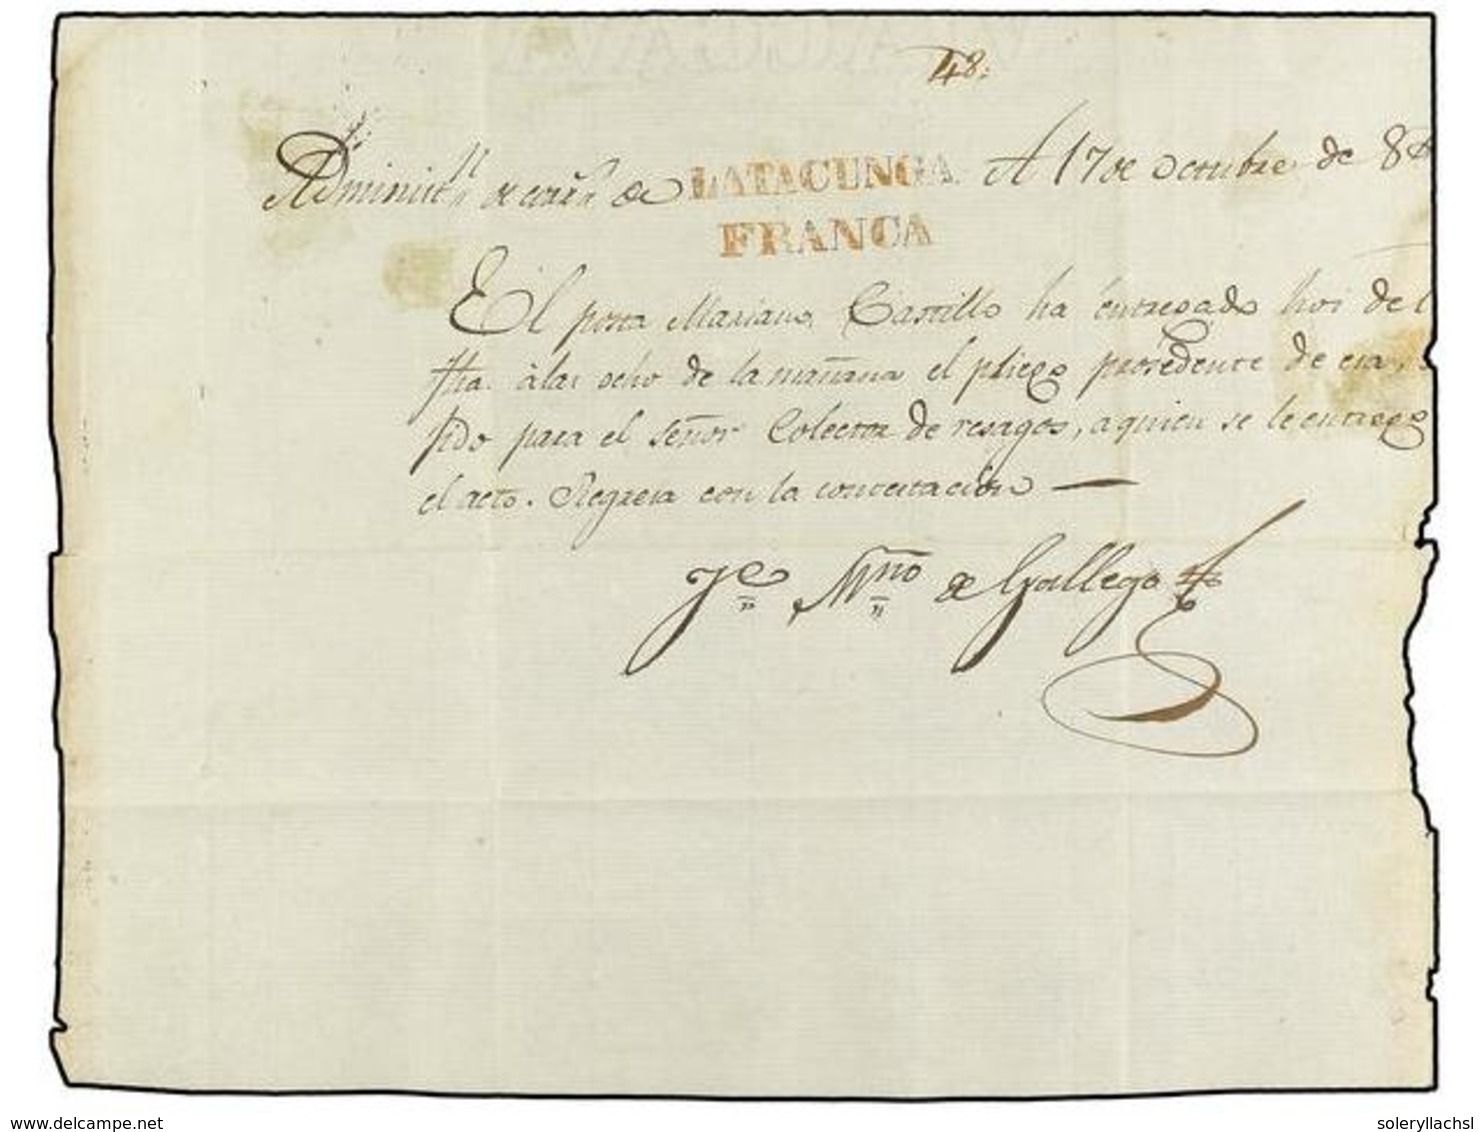 48.
Adminis.n de corr.s de LATACUNGA A 17 de Octubre de 8
FRANCA
El posta Mariano Castillo ha entregado hoi de l
fha. á las ocho de la mañana el pliego prosedente de esa,
pido para el señor Colector de resagos, a quien se le entregó
el acto. Regresa con la contestacion —
Je. Mno de Gallego
delcampe.net
soleryllachsl